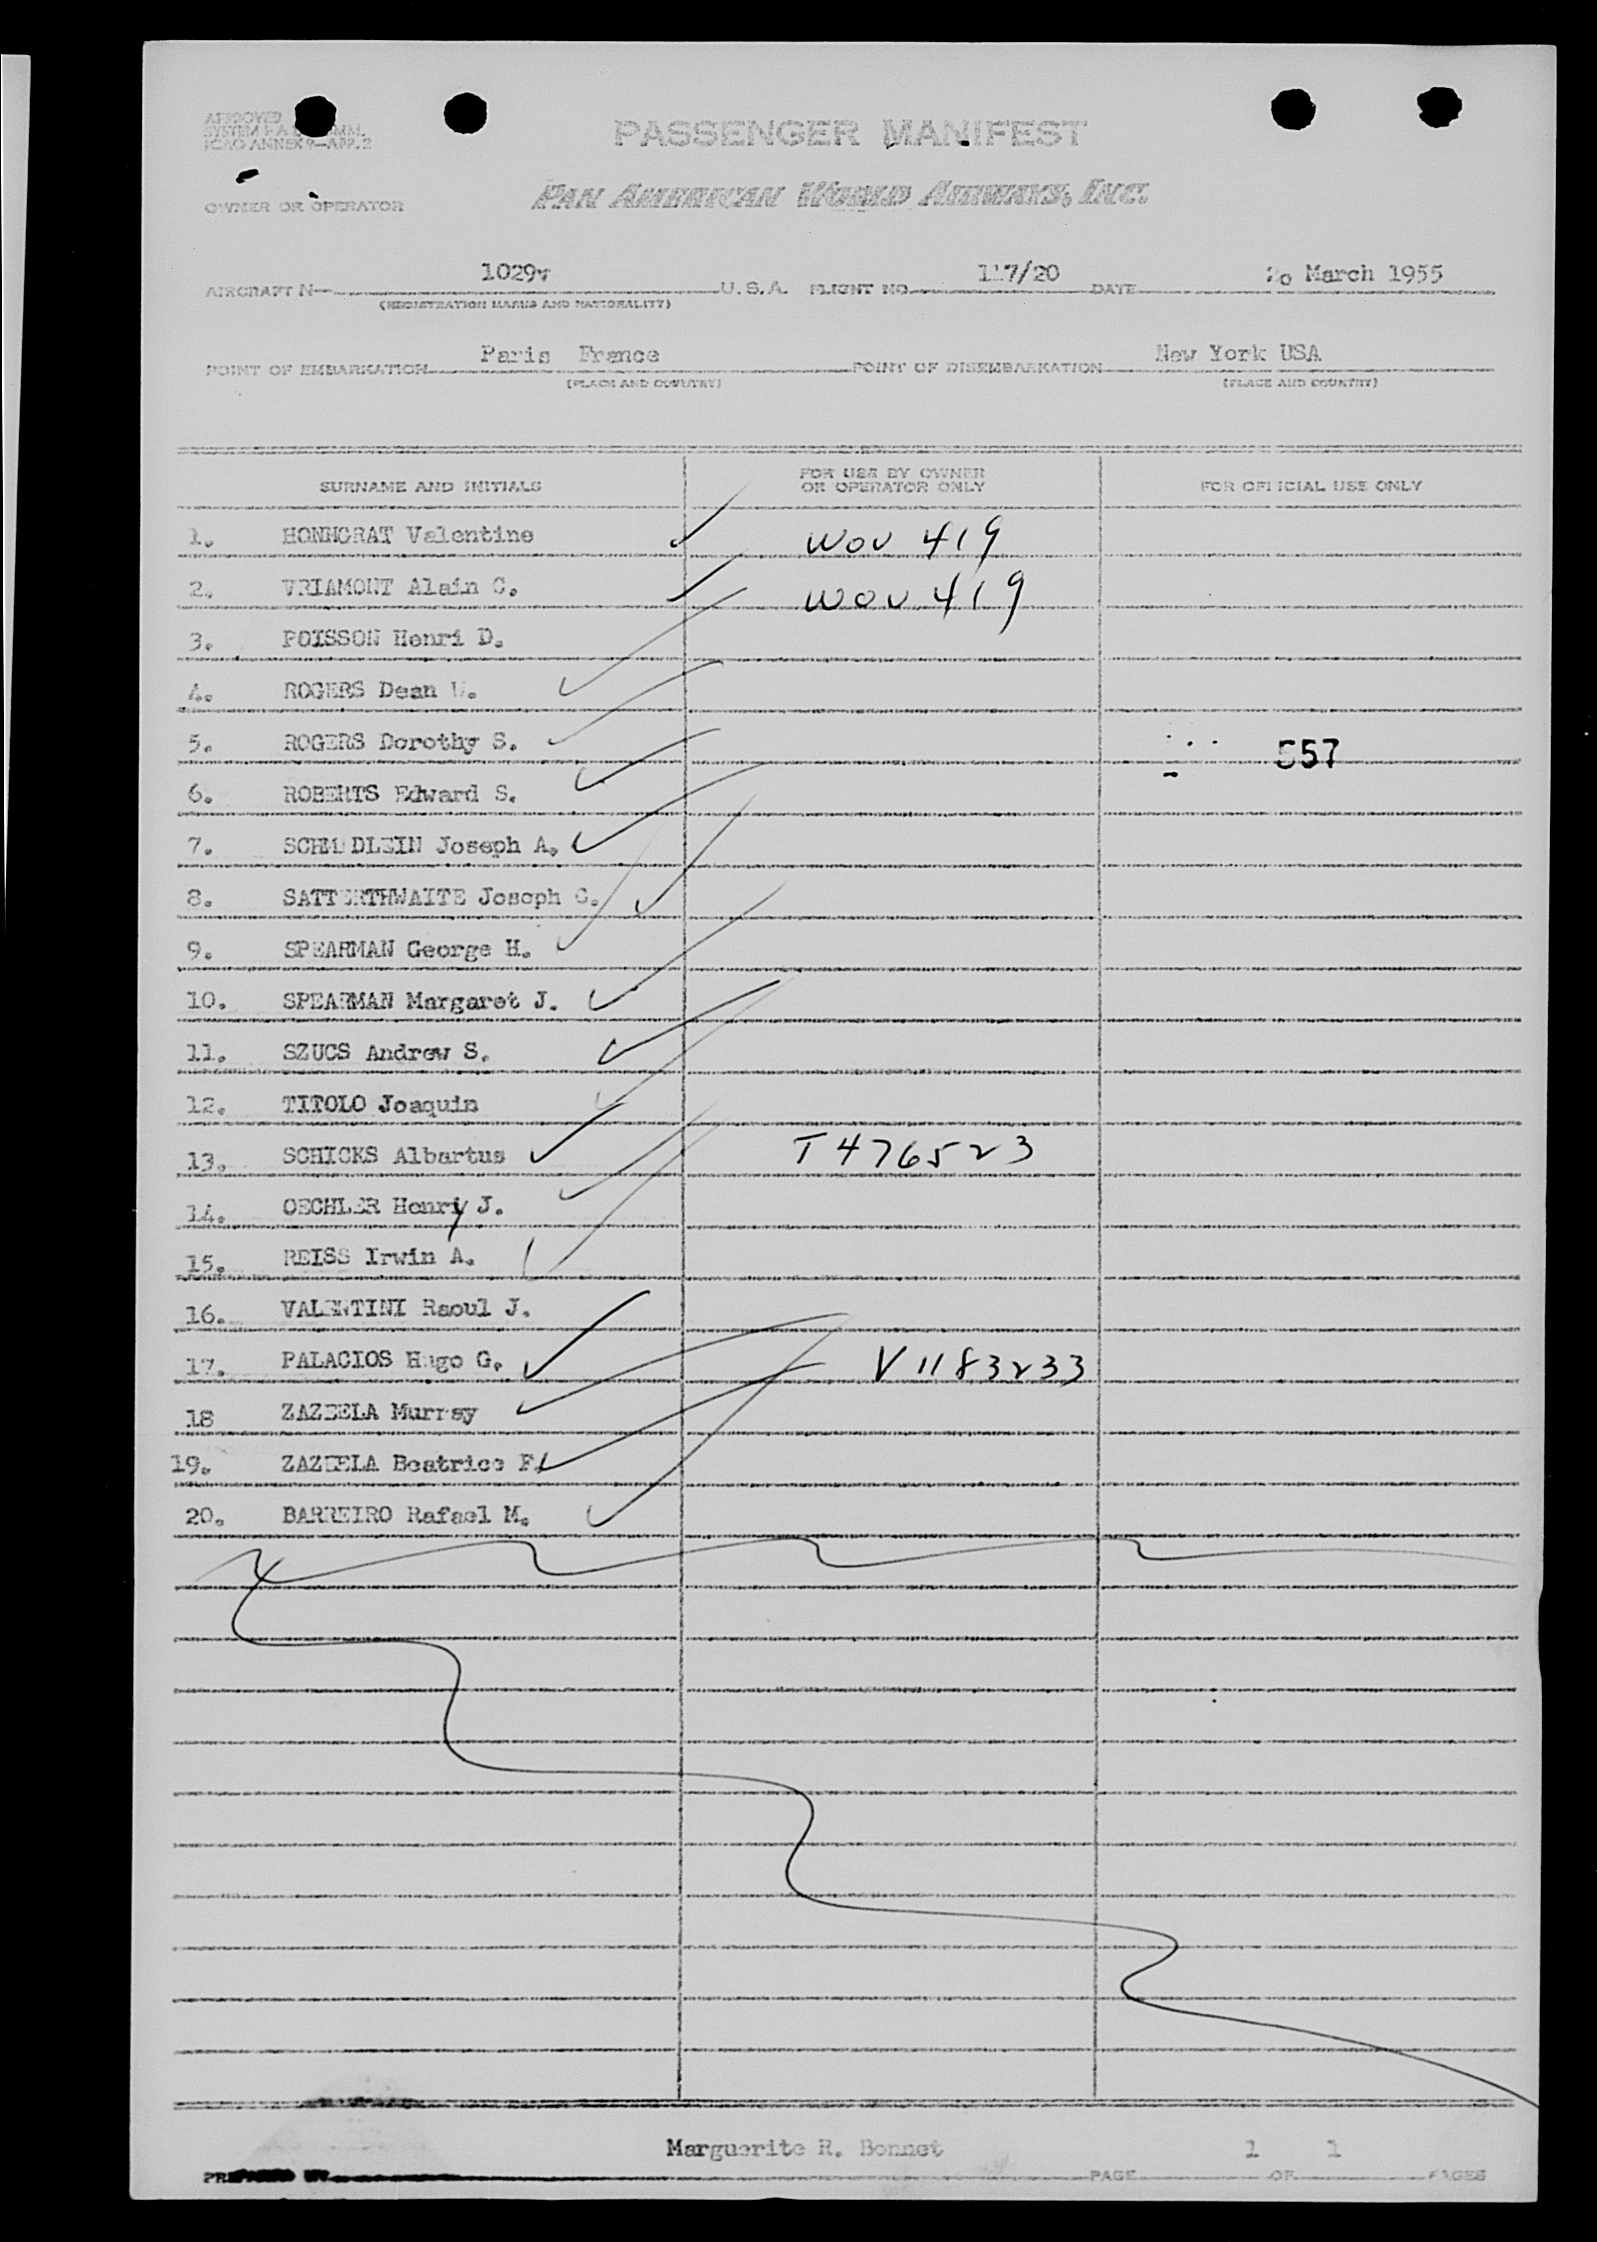 APPROVED
SYSTEM F.A COMM.
ICAO ANNEX 9—APP. 2
PASSENGER MANIFEST
OWNER OR OPERATOR PAN AMERICAN WORLD AIRWAYS, INC.
AIRCRAFT N— 1029v U.S.A. FLIGHT NO. 117/20 DATE 20 March 1955
(REGISTRATION MARKS AND NATIONALITY)
POINT OF EMBARKATION Paris France POINT OF DISEMBARKATION New York USA
(PLACE AND COUNTRY) (PLACE AND COUNTRY)
SURNAME AND INITIALS FOR USE BY OWNER OR OPERATOR ONLY FOR OFFICIAL USE ONLY
1. HONNORAT Valentine WOV 419
2. VRIAMONT Alain C. WOV 419
3. POISSON Henri D.
4. ROGERS Dean W.
5. ROGERS Dorothy S. 557
6. ROBERTS Edward S.
7. SCHMIDLEIN Joseph A.
8. SATTERTHWAITE Joseph C.
9. SPEARMAN George H.
10. SPEARMAN Margaret J.
11. SZUCS Andrew S.
12. TITOLO Joaquin
13. SCHICKS Albartus T476523
14. OECHLER Henry J.
15. REISS Irwin A.
16. VALENTINI Raoul J.
17. PALACIOS Hugo G. V1183233
18 ZAZEELA Murray
19. ZAZEELA Beatrice F.
20. BARREIRO Rafael M.
Marguerite R. Bonnet 1 1
PREPARED BY PAGE OF PAGES